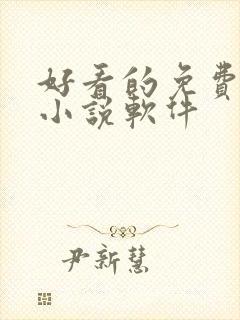 好看的免費
小說軟件
尹新慧